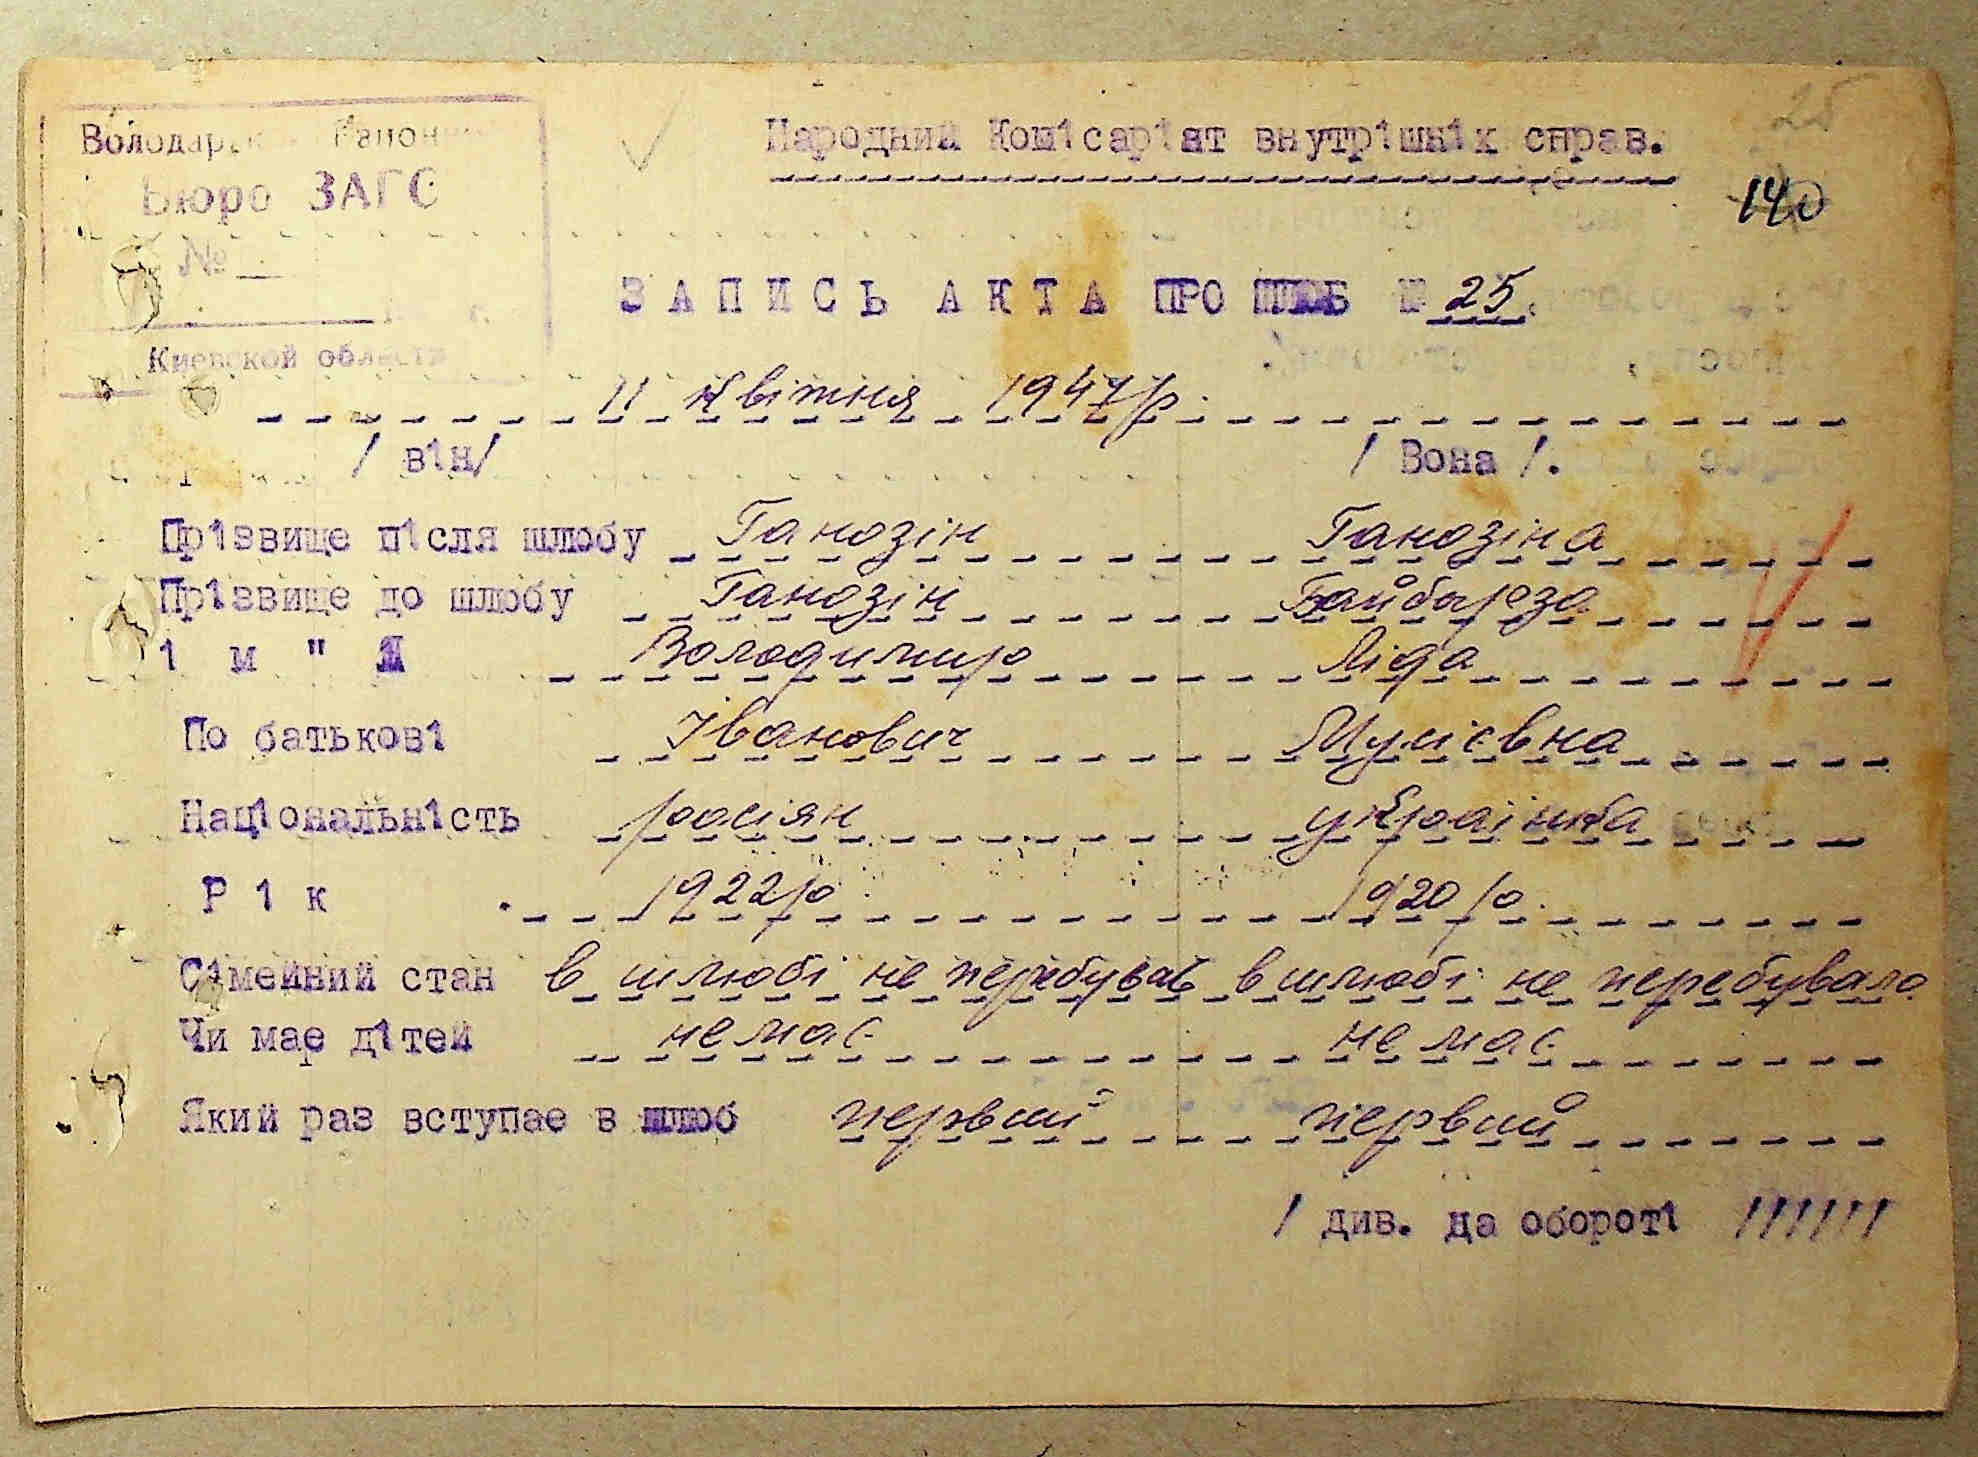 25
Народний Комісаріят внутрішніх справ.
140
Бюро ЗАГС
№
Киевской области
ЗАПИСЬ АКТА ПРО ШЛЮБ № 25.
11 квітня 1947 р.
/ він/ / Вона /.
Прізвище після шлюбу Ганозін Ганозіна
Прізвище до шлюбу Ганозін
І м " я Володимир Ліда
По батькові Іванович
Національність росіян українка
Р і к 1922 р. 1920 р.
Сімейний стан в шлюбі не перебував в шлюбі не перебувала
Чи мае дітей не має не має
Який раз вступае в шлюб первий первий
/ див. на обороті //////